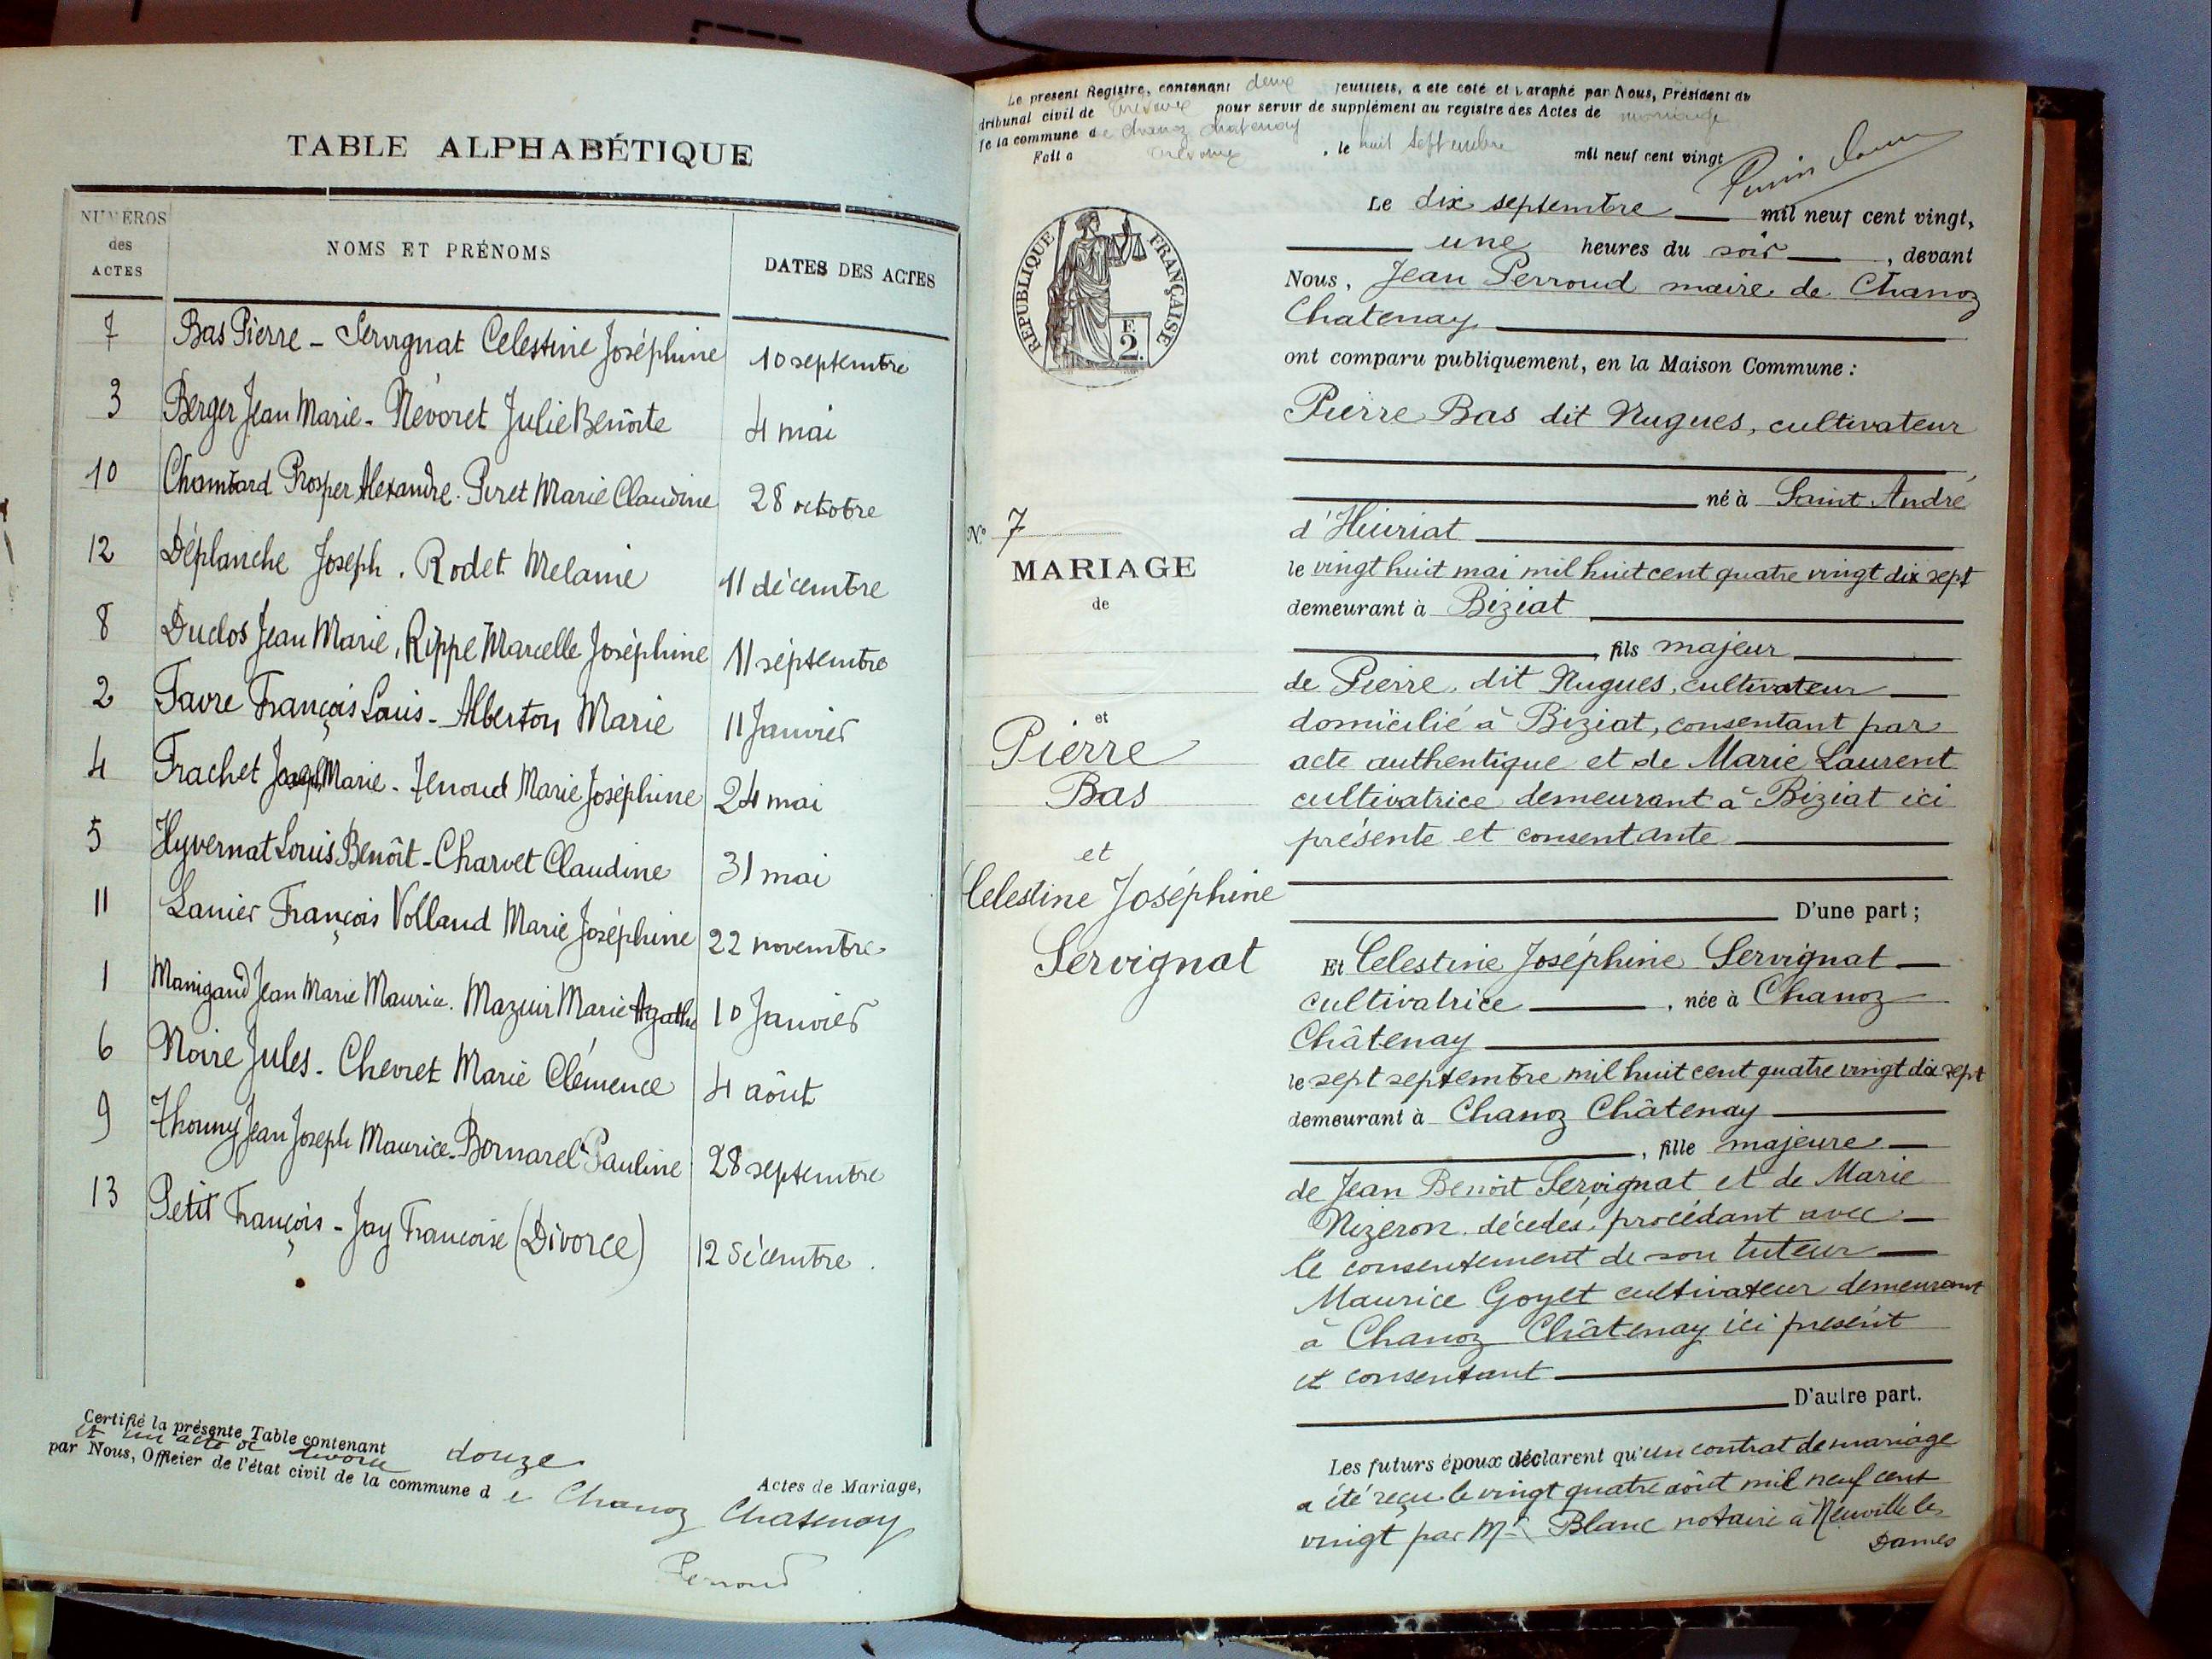 TABLE ALPHABÉTIQUE
NUMÉROS des ACTES
NOMS ET PRÉNOMS
DATES DES ACTES
7 Bas Pierre - Servignat Celestine Joséphine 10 septembre
3 Berger Jean Marie - Névoret Julie Benoîte 4 mai
10 Chambard Prosper Alexandre. Piret Marie Claudine 28 octobre
12 Déplanche Joseph. Rodet Melanie 11 décembre
8 Duclos Jean Marie, Rippe Marcelle Joséphine 11 septembre
2 Favre François Louis - Alberton Marie 11 Janvier
4 Frachet Joseph Marie - Tenoud Marie Joséphine 24 mai
5 Hyvernat Louis Benoît - Charvet Claudine 31 mai
11 Lanier François Volland Marie Joséphine 22 novembre
1 Manigand Jean Marie Maurice. Mazuir Marie Agathe 10 Janvier
6 Noire Jules - Chevret Marie Clémence 4 aôut
9 Thouny Jean Joseph Maurice - Bornarel Pauline 28 septembre
13 Petit François - Jay Francoise (Divorce) 12 décembre.
Certifié la présente Table contenant douze Actes de Mariage,
et un acte de divorce
par Nous, Officier de l'état civil de la commune de Chanoz Chatenay
Perroud
Le présent Registre, contenant deux feuillets, a été coté et paraphé par Nous, Président du
tribunal civil de Trévoux pour servir de supplément au registre des Actes de mariage
de la commune de Chanoz Chatenay
Fait a Trévoux, le huit Septembre mil neuf cent vingt
RÉPUBLIQUE FRANÇAISE
F.
2.
Le dix septembre mil neuf cent vingt,
une heures du soir, devant
Nous, Jean Perroud maire de Chanoz
Chatenay
ont comparu publiquement, en la Maison Commune :
Pierre Bas dit Nugues, cultivateur
né à Saint André
d'Huiriat
le vingt huit mai mil huit cent quatre vingt dix sept
demeurant à Biziat
, fils majeur
de Pierre, dit Nugues, cultivateur
domicilié à Biziat, consentant par
acte authentique et de Marie Laurent
cultivatrice demeurant à Biziat ici
présente et consentante
D'une part ;
Et Celestine Joséphine Servignat
cultivatrice, née à Chanoz
Châtenay
le sept septembre mil huit cent quatre vingt dix sept
demeurant à Chanoz Châtenay
, fille majeure
de Jean Benoît Servignat et de Marie
Nizeron. décedés, procédant avec
le consentement de son tuteur
Maurice Goyet cultivateur demeurant
à Chanoz Châtenay ici présent
et consentant
D'autre part.
Les futurs époux déclarent qu'un contrat de mariage
a été reçu le vingt quatre aôut mil neuf cent
vingt par Me Blanc notaire à Neuville les
Dames
N° 7
MARIAGE
de
et
Pierre
Bas
et
Celestine Joséphine
Servignat